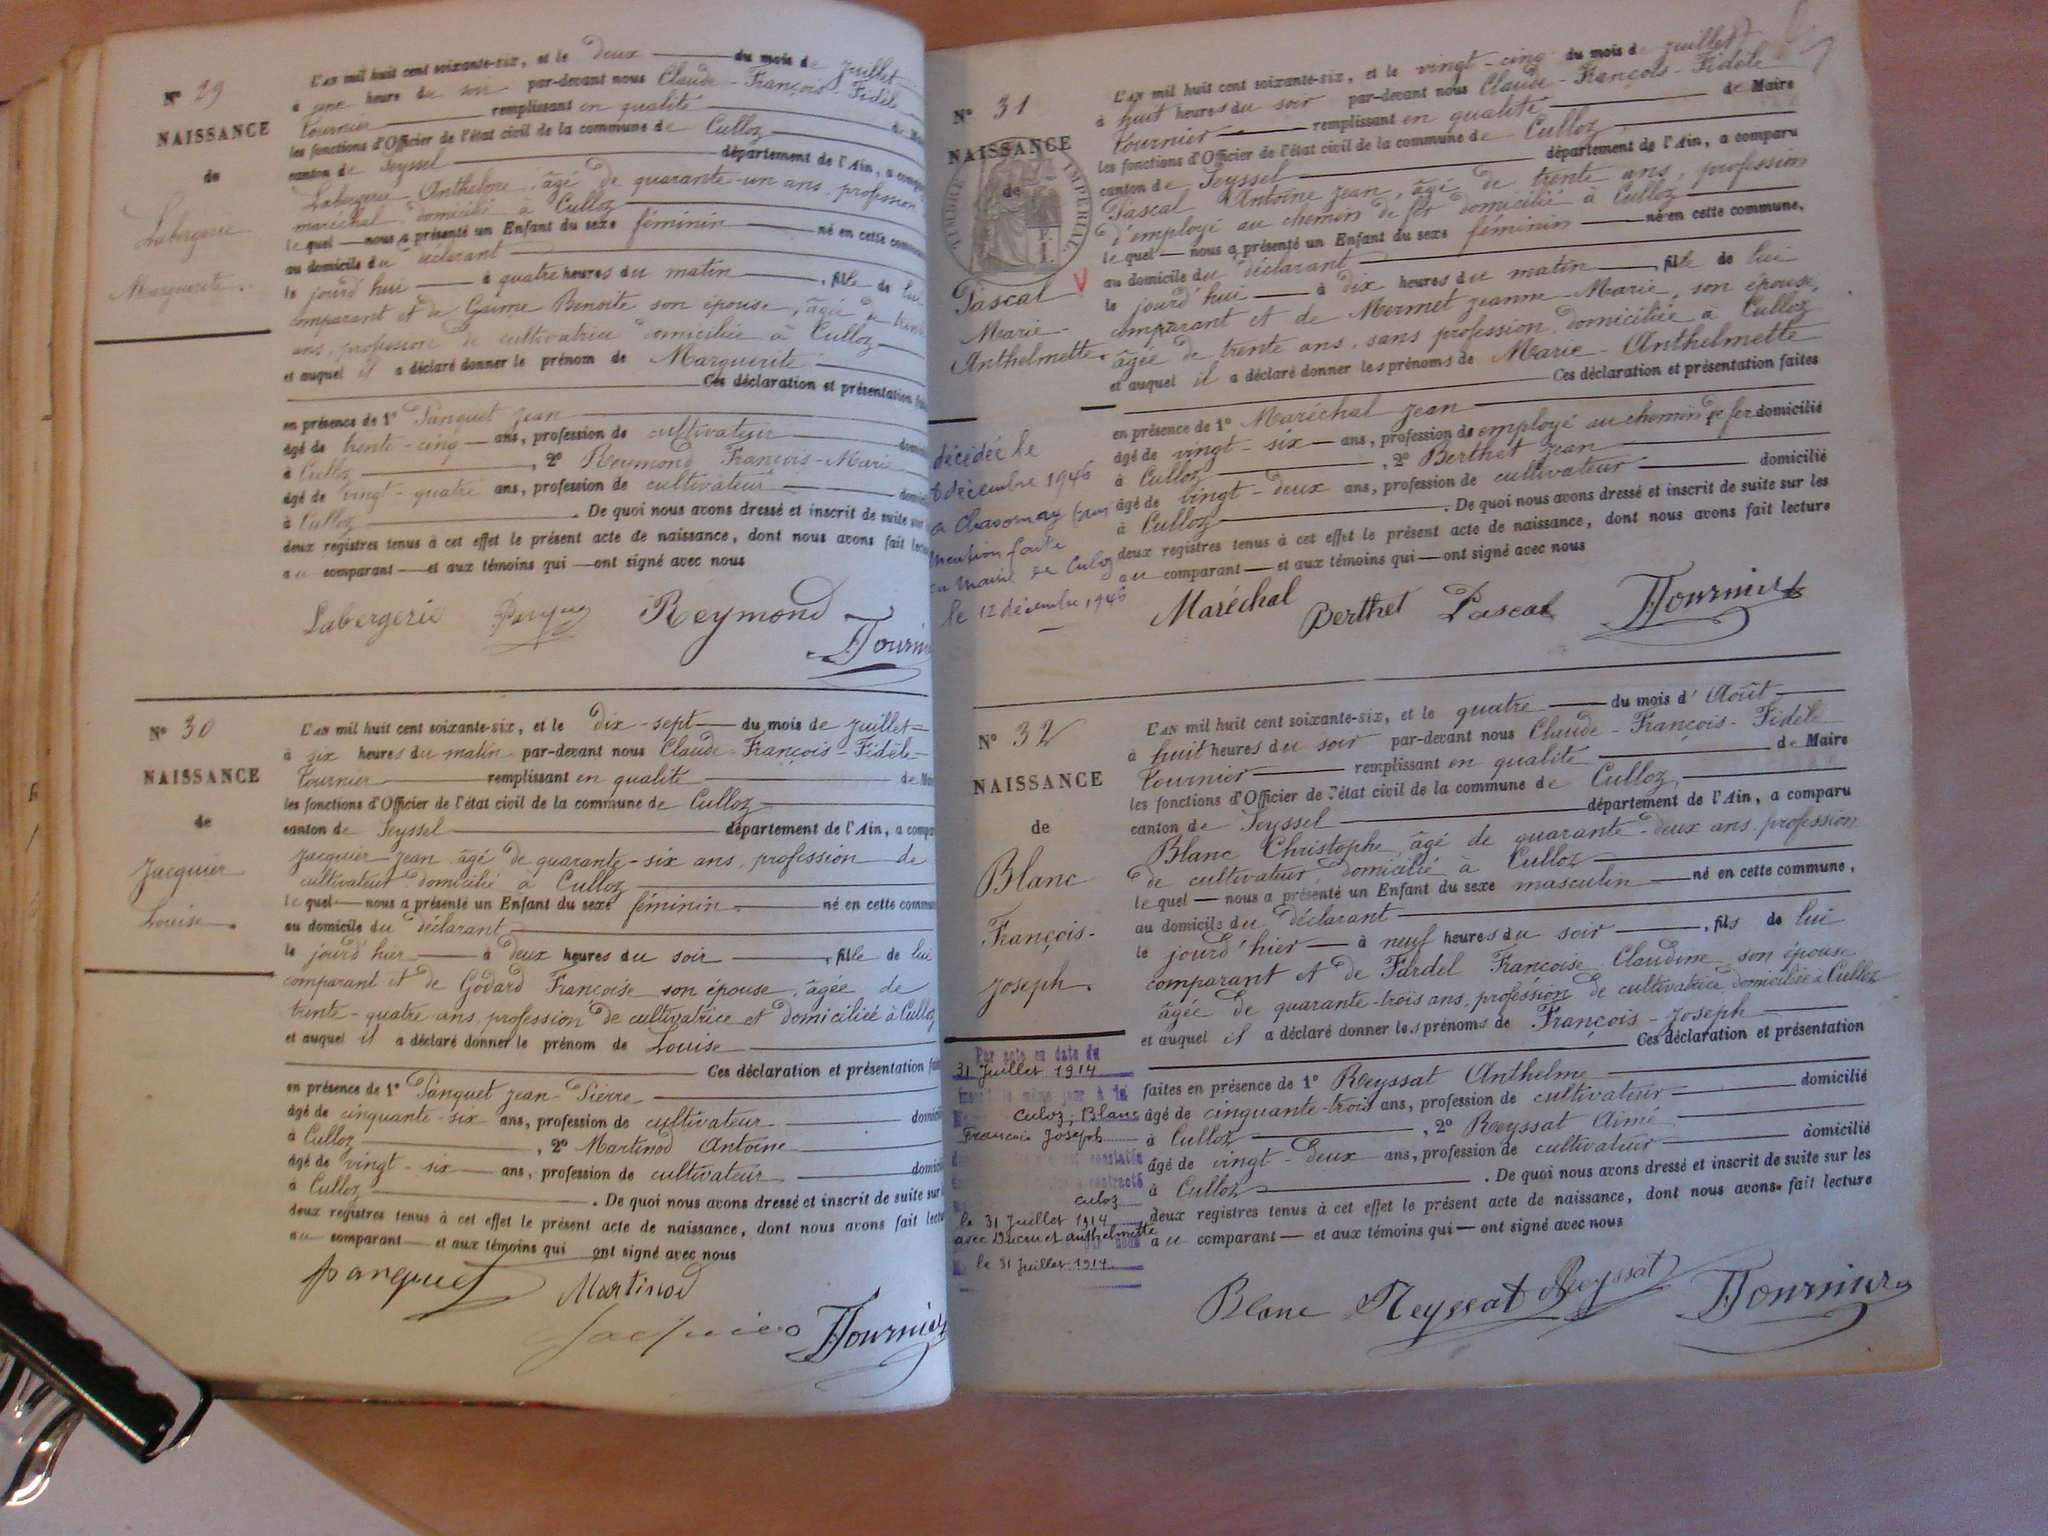 Nº 29
NAISSANCE
de
Labergerie
Marguerite.
L'AN mil huit cent soixante-six, et le deux du mois de juillet
à une heure du soir par-devant nous Claude-François-Fidèle
Tournier remplissant en qualité de
les fonctions d'Officier de l'état civil de la commune de Culloz
canton de Seyssel département de l'Ain, a comparu
Labergerie Anthelme, âgé de quarante-un ans, profession
maréchal domicilié à Culloz
lequel nous a présenté un Enfant du sexe féminin né en cette commune
au domicile du déclarant
le jourd'hui à quatre heures du matin, fille de lui
comparant et de Gaime Benoite son épouse, âgée de trente
ans, profession de cultivatrice domiciliée à Culloz
et auquel il a déclaré donner le prénom de Marguerite
Ces déclaration et présentation
en présence de 1º Panquet Jean
âgé de trente-cinq ans, profession de cultivateur
à Culloz, 2º Reymond François-Marie
âgé de vingt-quatre ans, profession de cultivateur
à Culloz. De quoi nous avons dressé et inscrit de suite sur
deux registres tenus à cet effet le présent acte de naissance, dont nous avons fait
au comparant et aux témoins qui ont signé avec nous
Labergerie Reymond
Tournier
Nº 30
NAISSANCE
de
Jacquier
Louise.
L'AN mil huit cent soixante-six, et le dix-sept du mois de juillet
à six heures du matin par-devant nous Claude-François-Fidèle
Tournier remplissant en qualité de
les fonctions d'Officier de l'état civil de la commune de Culloz
canton de Seyssel département de l'Ain, a
Jacquier Jean âgé de quarante-six ans, profession de
cultivateur domicilié à Culloz
lequel nous a présenté un Enfant du sexe féminin né en cette
au domicile du déclarant
le jourd'hier à deux heures du soir, fille de lui
comparant et de Godard Françoise son épouse, âgée de
trente-quatre ans, profession de cultivatrice et domiciliée à Culloz
et auquel il a déclaré donner le prénom de Louise
Ces déclaration et présentation
en présence de 1º Panquet Jean-Pierre
âgé de cinquante-six ans, profession de cultivateur
à Culloz, 2º Martinod Antoine
âgé de vingt-six ans, profession de cultivateur
à Culloz. De quoi nous avons dressé et inscrit de suite sur
deux registres tenus à cet effet le présent acte de naissance, dont nous avons fait
au comparant et aux témoins qui ont signé avec nous
Panquet Martinod
Jacquier Tournier
Nº 31
NAISSANCE
de
TIMBRE IMPÉRIAL
Pascal
Marie-
Anthelmette.
décédée le
décembre 1946
a
mention faite
en Mairie de Culoz
le 12 décembre 1946
L'AN mil huit cent soixante-six, et le vingt-cinq du mois de juillet
à huit heures du soir par-devant nous Claude-François-Fidèle
Tournier remplissant en qualité de Maire
les fonctions d'Officier de l'état civil de la commune de Culloz
canton de Seyssel département de l'Ain, a comparu
Pascal Antoine Jean, âgé de trente ans, profession
d'employé au chemin de fer domicilié à Culloz
lequel nous a présenté un Enfant du sexe féminin né en cette commune,
au domicile du déclarant
le jourd'hui à dix heures du matin, fille de lui
comparant et de Mermet Jeanne-Marie, son épouse,
âgée de trente ans, sans profession, domiciliée à Culloz
et auquel il a déclaré donner les prénoms de Marie-Anthelmette
Ces déclaration et présentation faites
en présence de 1º Maréchal Jean
âgé de vingt-six ans, profession de employé au chemin de fer domicilié
à Culloz, 2º Berthet Jean
âgé de vingt-deux ans, profession de cultivateur domicilié
à Culloz. De quoi nous avons dressé et inscrit de suite sur les
deux registres tenus à cet effet le présent acte de naissance, dont nous avons fait lecture
au comparant et aux témoins qui ont signé avec nous
Maréchal Berthet Pascal Tournier
Nº 32
NAISSANCE
de
Blanc
François-
Joseph.
Par acte en date du
31 Juillet 1914
inscrit le même jour à la
Culoz, Blanc
François Joseph
contracté
Culoz
le 31 Juillet 1914
avec Ducruet Anthelmette
le 31 Juillet 1914
L'AN mil huit cent soixante-six, et le quatre du mois d'Août
à huit heures du soir par-devant nous Claude-François-Fidèle
Tournier remplissant en qualité de Maire
les fonctions d'Officier de l'état civil de la commune de Culloz
canton de Seyssel département de l'Ain, a comparu
Blanc Christophe, âgé de quarante-deux ans, profession
de cultivateur domicilié à Culloz
lequel nous a présenté un Enfant du sexe masculin né en cette commune,
au domicile du déclarant
le jourd'hier à neuf heures du soir, fils de lui
comparant et de Fardel Françoise Claudine son épouse
âgée de quarante-trois ans, profession de cultivatrice domiciliée à Culloz
et auquel il a déclaré donner les prénoms de François-Joseph
Ces déclaration et présentation
faites en présence de 1º Reyssat Anthelme domicilié
âgé de cinquante-trois ans, profession de cultivateur
à Culloz, 2º Reyssat Aimé
âgé de vingt-deux ans, profession de cultivateur domicilié
à Culloz. De quoi nous avons dressé et inscrit de suite sur les
deux registres tenus à cet effet le présent acte de naissance, dont nous avons fait lecture
au comparant et aux témoins qui ont signé avec nous
Blanc Reyssat Reyssat Tournier